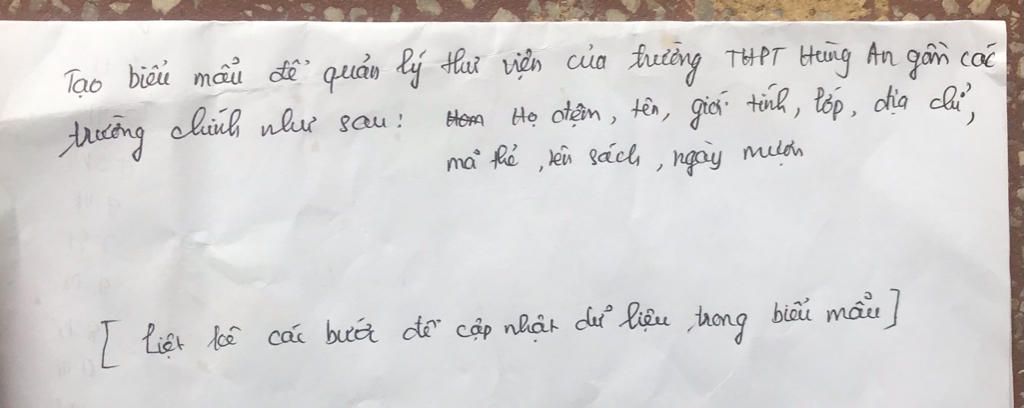 Tạo biểu mẫu để quản lý thư viện của trường THPT Hùng An gồm các
trường chính như sau: Họ đệm, tên, giới tính, lớp, địa chỉ,
mã thẻ, tên sách, ngày mượn
[ liệt kê các bước để cập nhật dữ liệu trong biểu mẫu ]